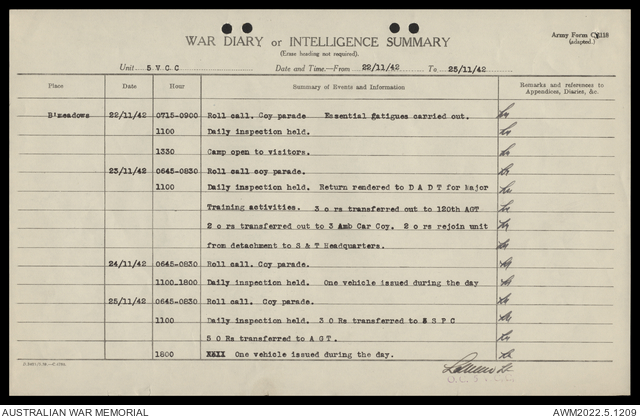 Army Form C2118
(adapted.)
WAR DIARY or INTELLIGENCE SUMMARY
(Erase heading not required).
Unit 5 V.C.C Date and Time—From 22/11/42 To 25/11/42
Place Date Hour Summary of Events and Information Remarks and references to Appendices, Diaries, &c.
B'meadows 22/11/42 0715-0900 Roll call. Coy parade Essential fatigues carried out.
1100 Daily inspection held.
1330 Camp open to visitors.
23/11/42 0645-0830 Roll call coy parade.
1100 Daily inspection held. Return rendered to D A D T for Major
Training activities. 3 o rs transferred out to 120th AGT
2 o rs transferred out to 3 Amb Car Coy. 2 o rs rejoin unit
from detachment to S & T Headquarters.
24/11/42 0645-0830 Roll call. Coy parade.
1100.1800 Daily inspection held. One vehicle issued during the day
25/11/42 0645-0830 Roll call. Coy parade.
1100 Daily inspection held. 3 O Rs transferred to S P C
5 O Rs transferred to A G T.
1800 One vehicle issued during the day.
AUSTRALIAN WAR MEMORIAL AWM2022.5.1209